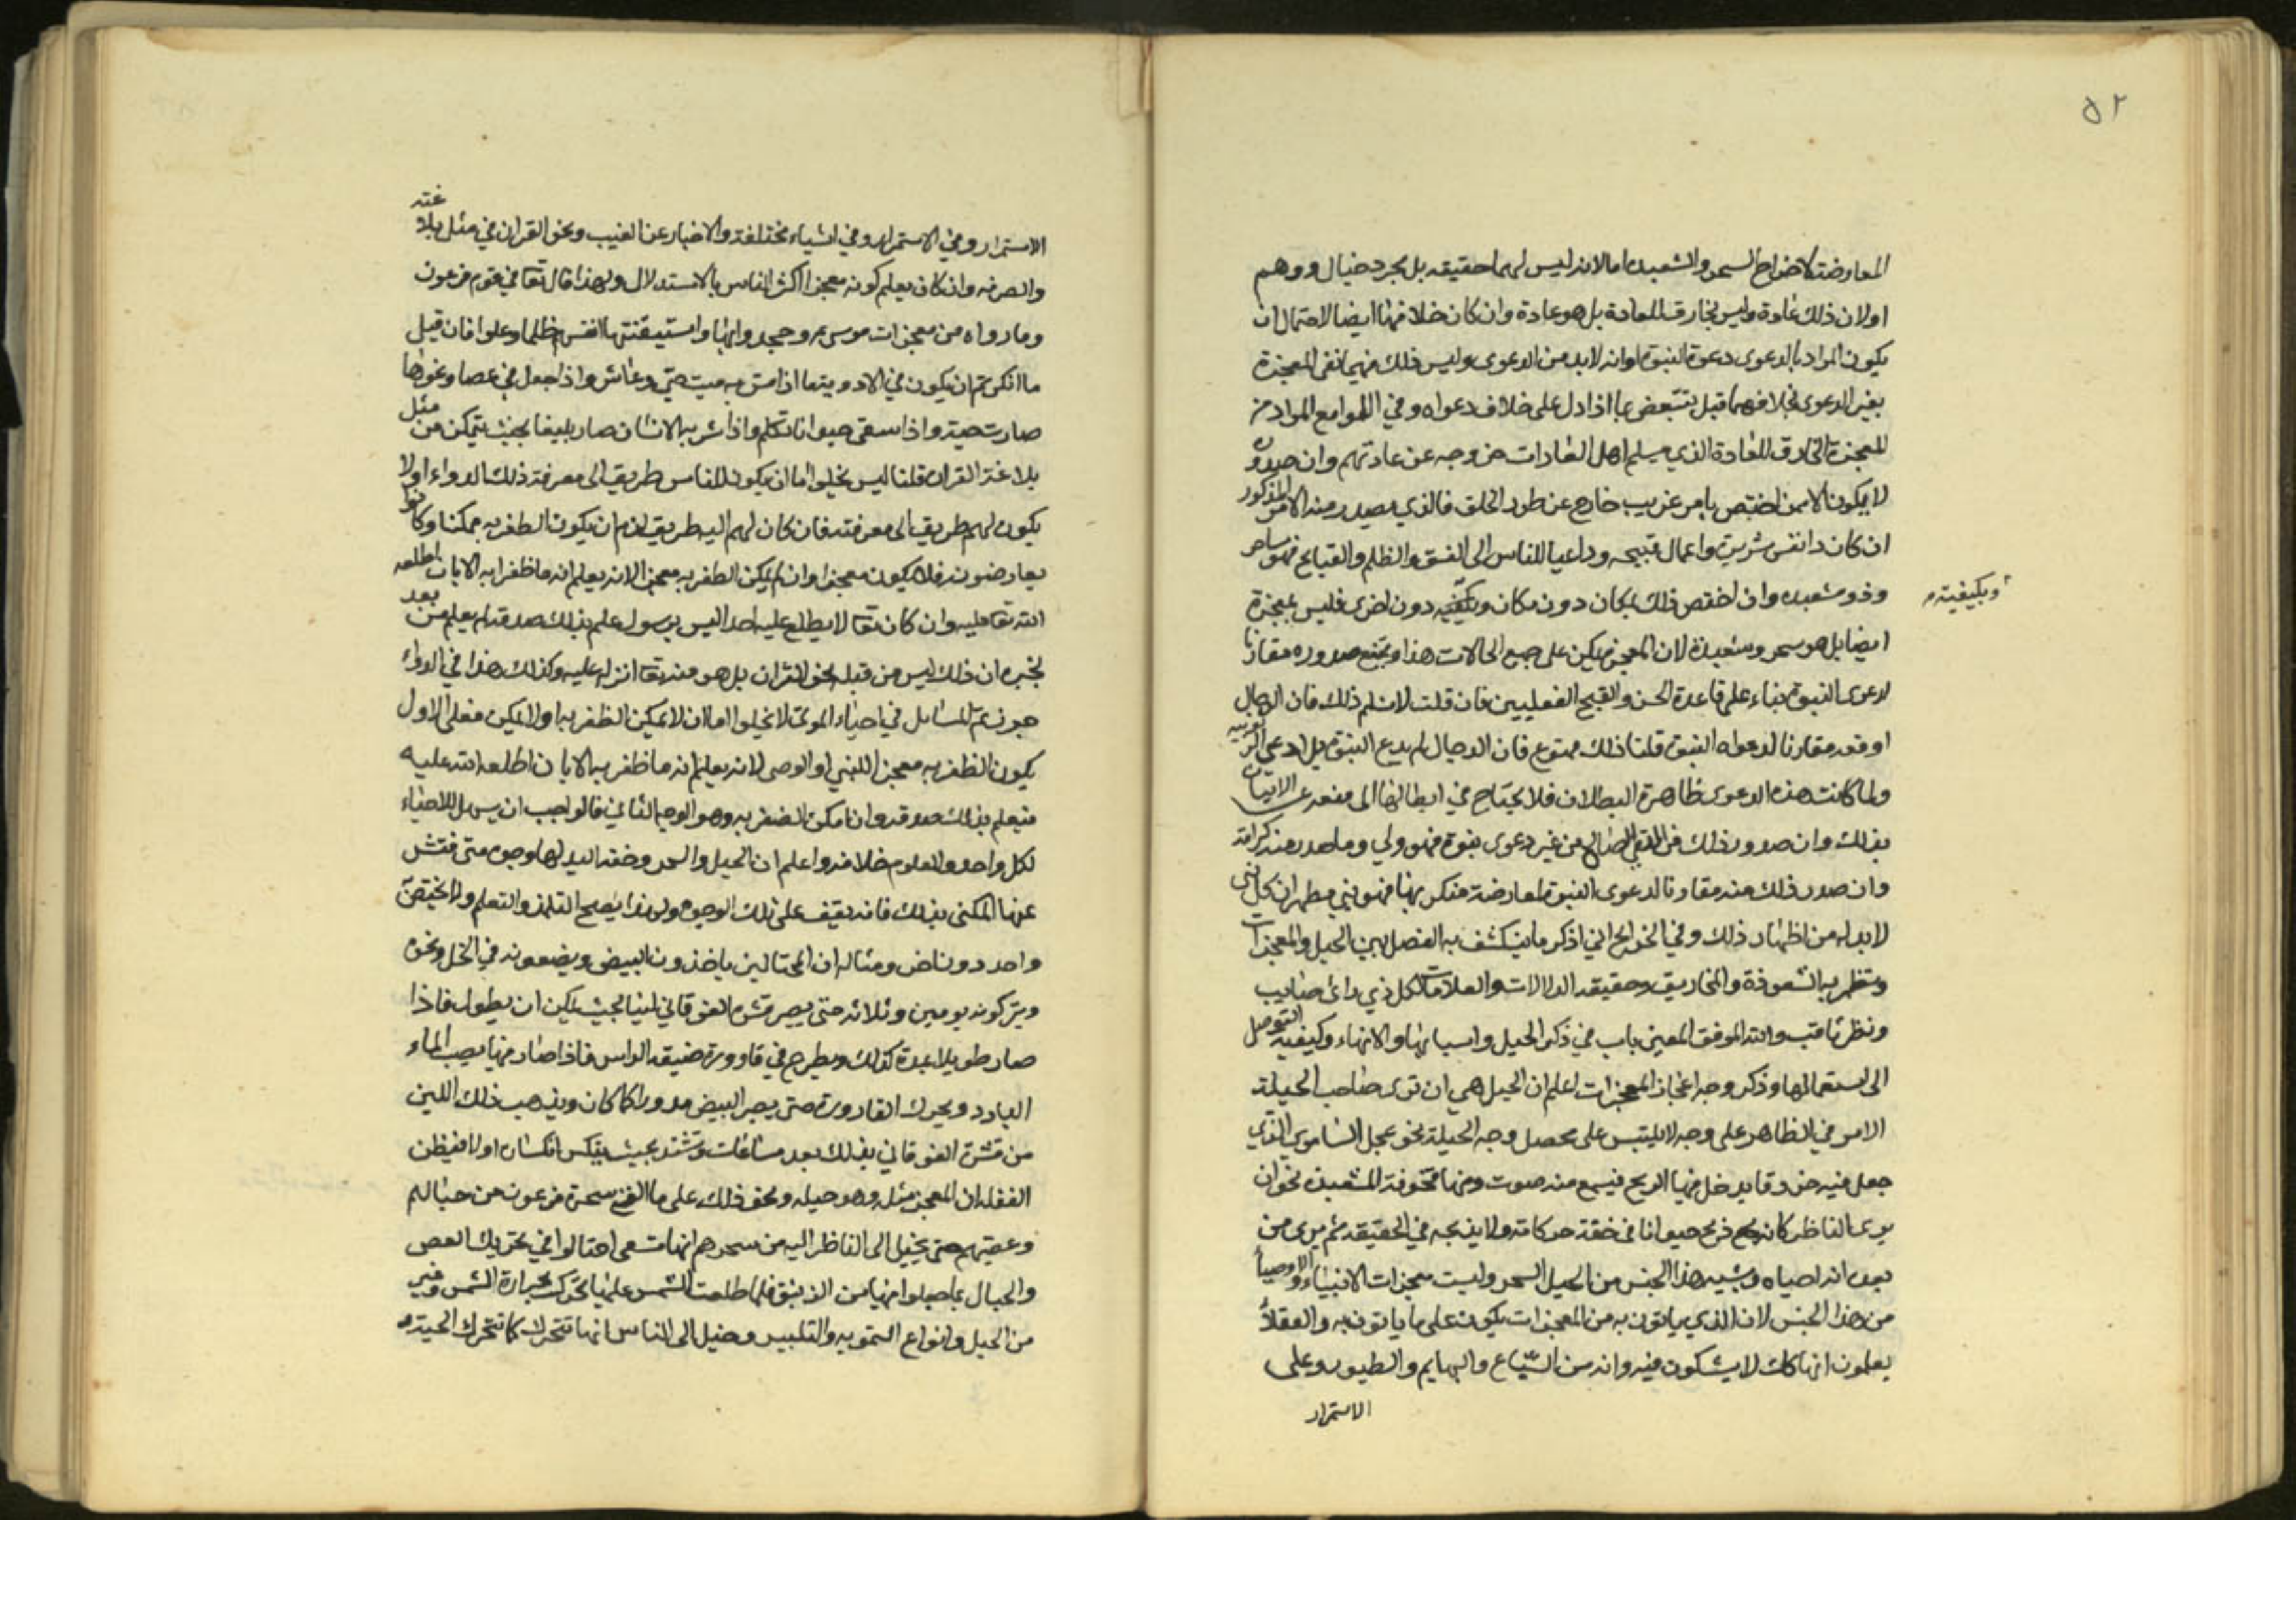 ٥٢
المعارضة لاخراج السحر والشعبده اما لانه ليس لهما حقيقه بل مجرد خيال ووهم
اولان ذلك عادة وليس بخارق للعادة بل هو عادة وان كان خلافها ايضا لاحتمال ان
يكون المراد بالدعوى دعوة النبوة اوانه لابد من الدعوى وليس ذلك فيهما نفى المعجزة
بغير الدعوى بخلافهما قيل بما اذا دل على خلاف دعواه وفي اللوامع المراد من
المعجزة الخارق للعادة الذي يسلم اهل العادات خروجه عن عادتهم وان صدوره
لا يكون الا ممن اختص بامر غريب خارج عن طور الخلق فالذي يصدر منه الامر المذكور
ان كان ذا نفس شريرة واعمال قبيحه وداعيا للناس الى الفسق والظلم والقبايح فهو ساحر
وذو شعبده وان اختص ذلك بمكان دون مكان وبكيفيه دون اخرى فليس بمعجزة
وبكيفيته
ايضا بل هو سحر وشعبدة لان المعجز يمكن على جميع الحالات هذا ويمتنع صدوره مقارنا
لدعوى النبوة بناء على قاعدة الحسن والقبح الفعليين فان قلت لا نسلم ذلك فان الدجال
اوقعه مقارنا لدعواه النبوة قلنا ذلك ممنوع فان الدجال لم يدع النبوة بل ادعى الربوبيه
ولما كانت هذه الدعوى ظاهرة البطلان فلا يحتاج في ابطالها الى منعه عن الاتيان
بذلك وان صدر ذلك من المتقي الصالح من غير دعوى نبوة فهو ولي وما صدر منه كرامة
وان صدر ذلك منه مقارنا لدعوى النبوة لمعارضة منكر بها فهو نبي مطهر ان كل نبى
لابد له من اظهار ذلك وفي الخرايج اني اذكر ما ينكشف به الفصل بين الحيل والمعجزات
ويظهر به الشعوذة والمخاريق وحقيقه الدلالات والعلامات لكل ذي رائ صايب
ونظر ثاقب والله الموفق المعين باب في ذكر الحيل واسبابها والاتها وكيفيه التوصل
الى استعمالها وذكر وجه اعجاز المعجزات اعلم ان الحيل هي ان ترى صاحب الحيلة
الامر في الظاهر على وجه لا يلتبس على محصل وجه الحيلة نحو عجل السامري الذي
جعل فيه خروقا يدخل فيها الريح فيسمع منه صوت ومنها مخوفة المشعبذ نحو ان
يرى الناظر كانه ذبح حيوانا في خفة حركاته ولا يذبحه في الحقيقه ثم يرى من
بعد انه احياه ويشبه هذا الجنس من الحيل السحر وليست معجزات الانبياء والاوصياء
من هذا الجنس لان الذي ياتون به من المعجزات يكون على ما ياتون به والعقلاء
يعلمون انها كك لا يشكون فيه وانه من السباع والبهايم والطيور وعلى
الاستمرار
الاستمرار وفي الاستمرار وفي اشياء مختلفة والاخبار عن الغيب ونحو القران في مثل بلاغته
والصرفه وان كان يعلم كونه معجزا اكثر الناس بالاستدلال ولهذا قال تعا في قوم فرعون
وما رواه من معجزات موسى ع وجحدوا بها واستيقنتها انفسهم ظلما وعلوا فان قيل
ما انكرتم ان يكون في الادوية ما اذا مس به ميت حتى وعاش واذا جعل في عصا ونحوها
صارت حية واذا سقى حيوانا تكلم واذا شربه الانسان صار بليغا بحيث يتمكن من مثل
بلاغة القران قلنا ليس يخلوا اما ان يكون للناس طريق الى معرفة ذلك الدواء اولا
يكون لهم طريق الى معرفته فان كان لهم اليه طريق لزم ان يكون الظفر به ممكنا وكانوا
يعارضونه فلا يكون معجزا وان لم يمكن الظفر به معجز لانه يعلم انه ما ظفر به الا بان اطلعه
الله تعا عليه وان كان تعا لا يطلع عليه احدا ليس برسول علم بذلك صدقه ثم يعلم من بعد
بخبره ان ذلك ليس من قبله نحو القران بل هو منه تعا انزله عليه وكذلك هذا في الدواء
المسائل في احياء الموتى لا يخلوا اما ان لا يمكن الظفر به اولا يمكن فعلى الاول
يكون الظفر به معجز اللنبي او الوصى لانه يعلم انه ما ظفر به الا بان اطلعه الله عليه
فيعلم بذلك صدقه وان امكن الظفر به وهو الوجه الثاني فالواجب ان يسهل الاحياء
لكل واحد والمعلوم خلافه واعلم ان الحيل والسحر وخفة اليد لها وجوه متى فتش
عنها المكنى بذلك فانه يقف على تلك الوجوه ولهذا يصح التلمذ والتعلم ولا يختص
واحد دون اخر ومثاله ان المحتالين ياخذون البيض ويضعونه في الخل ونحوه
ويتركونه يومين وثلاثه حتى يصير قشره الفوقاني لينا بحيث يمكن ان يطول فاذا
صار طويلا بمدة كذلك يطرح في قارورة ضيقه الراس فاذا صار فيها يصب الماء
البارد ويحرك القارورة حتى يصير البيض مدورا كما كان ويذهب ذلك اللين
من قشره الفوقاني بذلك بعد ساعات وتشتد بحيث ينكسر انكساره اولا فيظن
الغفله ان المعجز مثله وهو حيله ونحو ذلك على ما القى سحرة فرعون من حبالهم
وعصيهم حتى يخيل الى الناظر اليه من سحرهم انها تسعى احتالوا في تحريك العصي
والحبال بما جعلوا فيها من الزيبق فلما طلعت الشمس عليها تحركت بحرارة الشمس وغير
من الحيل وانواع التمويه والتلبيس وخيل الى الناس انها تتحرك كما تتحرك الحية